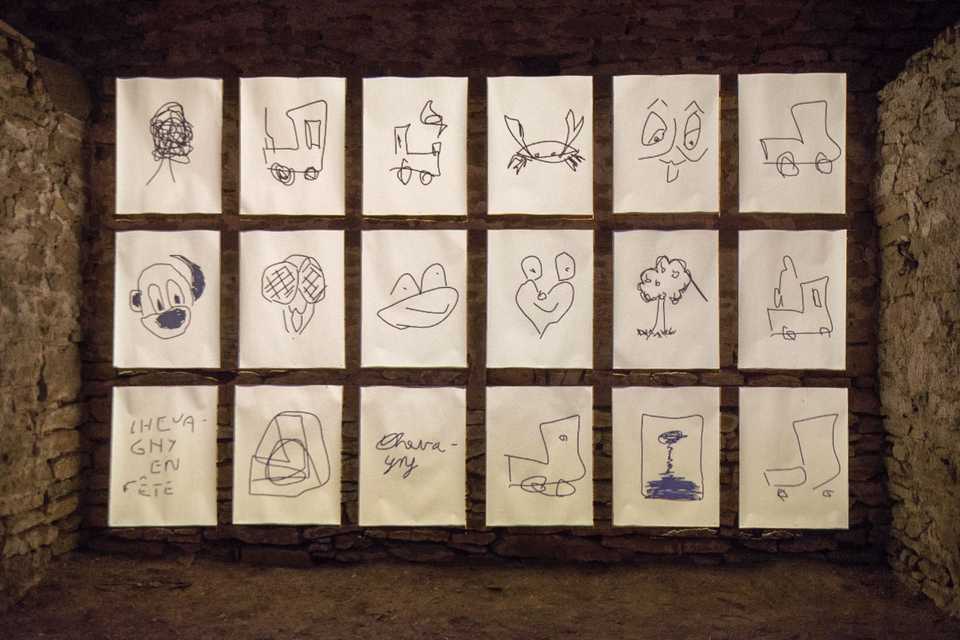 CHEVA-
GNY
EN
FÊTE
Cheva-
gny